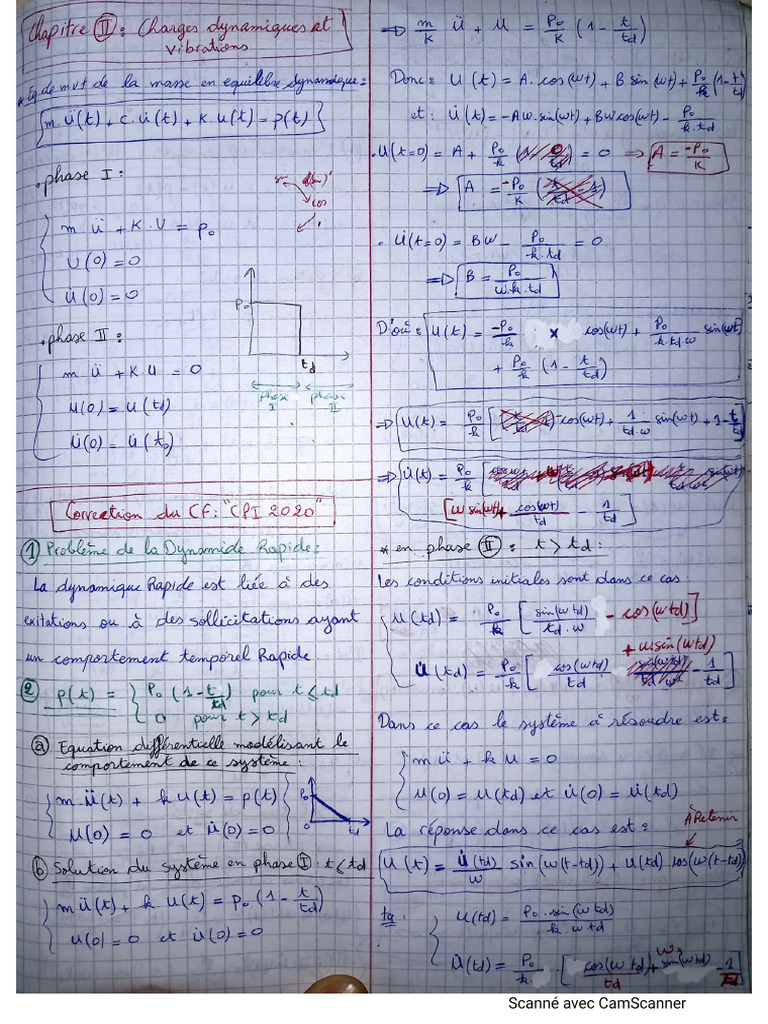 Chapitre II : Charges dynamiques et
vibrations
* Eq de mvt de la masse en equilibre dynamique :
m.ü(t) + c.u̇(t) + K.u(t) = p(t)
• phase I :
m ü + K.U = P₀
U(0) = 0
u̇(0) = 0
cos
P₀
td
phase I
phase II
• phase II :
m ü + K u = 0
u(0) = u(td)
u̇(0) = u̇(t₀)
Correction du CF : "CPI 2020"
① Problème de la Dynamide Rapide :
La dynamique Rapide est liée à des
exitations ou à des sollicitations ayant
un comportement temporel Rapide
② p(t) = { P₀ (1 - t/td) pour t ≤ td
0 pour t > td
ⓐ Equation différentielle modélisant le
comportement de ce système :
m ü(t) + k u(t) = p(t)
u(0) = 0 et u̇(0) = 0
P₀
0
td
ⓑ Solution du système en phase I : t ≤ td
m ü(t) + k u(t) = P₀ (1 - t/td)
u(0) = 0 et u̇(0) = 0
=> m/K ü + u = P₀/K (1 - t/td)
Donc : u(t) = A.cos(wt) + B sin(wt) + P₀/k (1 - t/td)
et : u̇(t) = -Aw.sin(wt) + Bw cos(wt) - P₀/k.td
• u(t=0) = A + P₀/k = 0 => A = -P₀/K
=> A = -P₀/K
• u̇(t=0) = Bw - P₀/k.td = 0
=> B = P₀/w.k.td
D'où : u(t) = -P₀/k × cos(wt) + P₀/k.td.w sin(wt)
+ P₀/k (1 - t/td)
=> u(t) = P₀/k [-cos(wt) + 1/td.w sin(wt) + 1 - t/td]
=> u̇(t) = P₀/k
[w sin(wt) + cos(wt)/td - 1/td]
* en phase II : t > td :
Les conditions initiales sont dans ce cas :
u(td) = P₀/k [sin(wtd)/td.w - cos(wtd)]
+ w sin(wtd)
u̇(td) = P₀/k [cos(wtd)/td - 1/td]
Dans ce cas le système à résoudre est :
m ü + k u = 0
u(0) = u(td) et u̇(0) = u̇(td)
La réponse dans ce cas est :
À Retenir
u(t) = u̇(td)/w sin(w(t-td)) + u(td).cos(w(t-td))
tq :
u(td) = P₀.sin(wtd)/k.wtd
u̇(td) = P₀/k.[cos(wtd)/td + w sin(wtd) - 1/td]
Scanné avec CamScanner